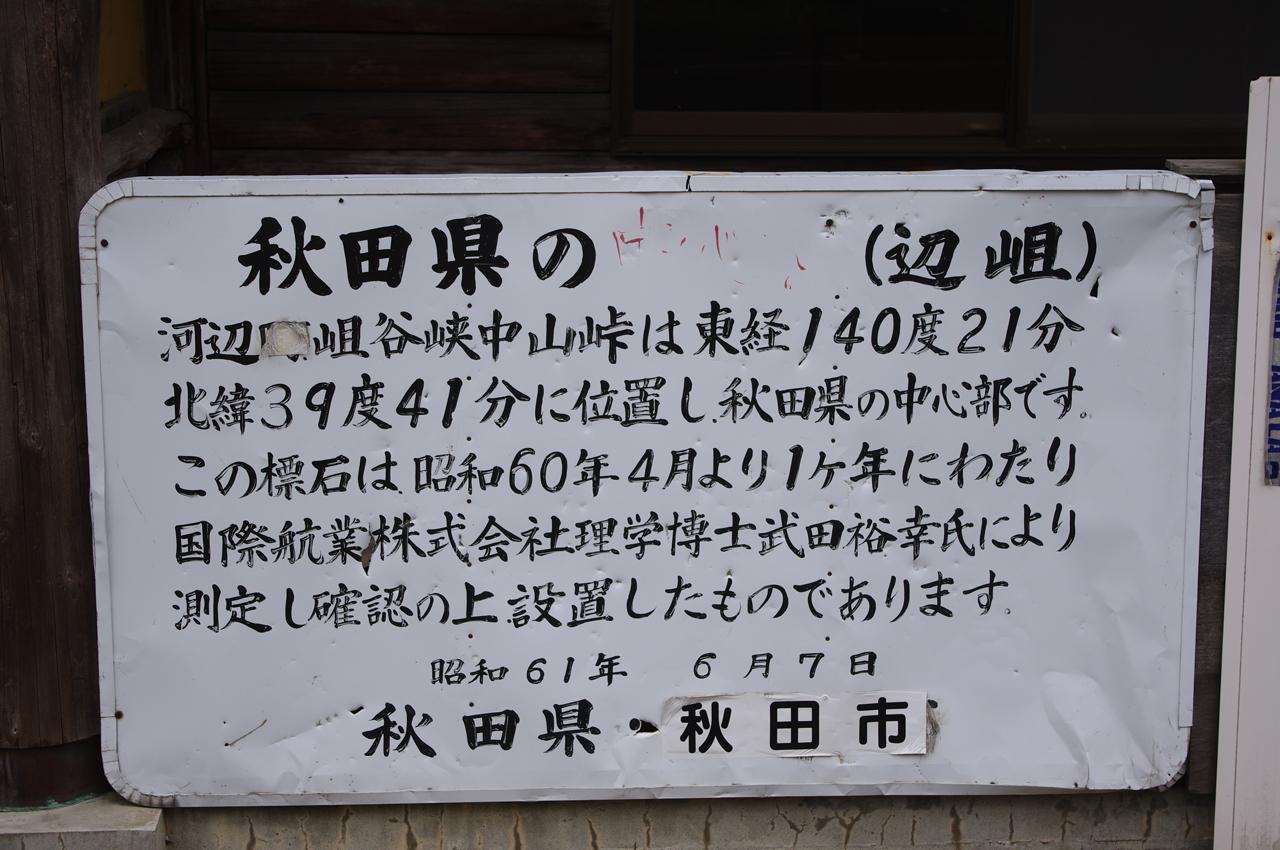 秋田県の (辺岨)
河辺 岨谷峡中山峠は東経140度21分
北緯39度41分に位置し秋田県の中心部です。
この標石は昭和60年4月より1ヶ年にわたり
国際航業株式会社理学博士武田裕幸氏により
測定し確認の上設置したものであります。
昭和61年 6月7日
秋田県・秋田市